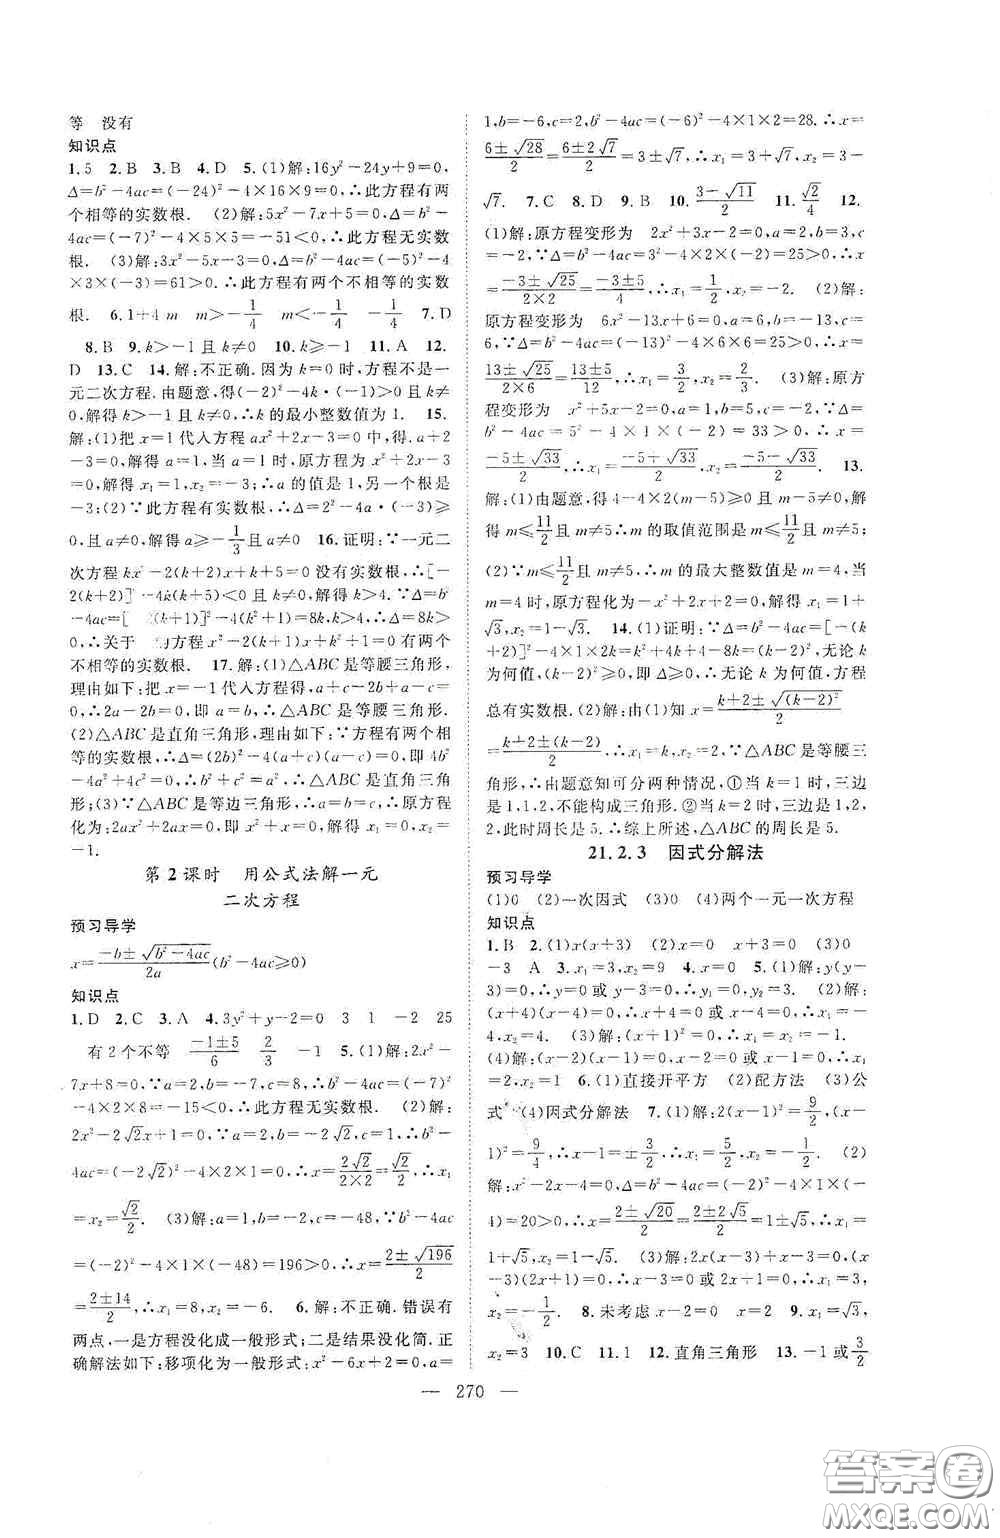 等　没有
知识点
1.5　2.B　3.B　4.D　5.(1)解:16y²−24y+9=0,
Δ=b²−4ac=(−24)²−4×16×9=0,∴此方程有两
个相等的实数根.　(2)解:5x²−7x+5=0,Δ=b²−
4ac=(−7)²−4×5×5=−51<0,∴此方程无实数
根.　(3)解:3x²−5x−3=0,Δ=b²−4ac=(−5)²−4
×3×(−3)=61>0.∴此方程有两个不相等的实数
根.　6.1+4m　m>−1/4　m<−1/4　7.D
8.B　9.k>−1且k≠0　10.k⩾−1　11.A　12.
D　13.C　14.解:不正确.因为k=0时,方程不是一
元二次方程.由题意,得(−2)²−4k·(−1)>0且k
≠0,解得k>−1且k≠0,∴k的最小整数值为1.　15.
解:(1)把x=1代入方程ax²+2x−3=0中,得.a+2
−3=0,解得a=1,当a=1时,原方程为x²+2x−3=
0,解得x₁=1,x₂=−3;∴a的值是1,另一个根是
−3;(2)∵此方程有实数根,∴Δ=2²−4a·(−3)⩾
0,且a≠0,解得a⩾−1/3且a≠0　16.证明:∵一元二
次方程kx²−2(k+2)x+k+5=0没有实数根,∴[−
2(k+2)]²−4k(k+5)<0,解得k>4.∵Δ=b²−4ac
=[−2(k+1)]²−4(k²+1)=8k,k>4,∴Δ=8k>
0,∴关于 的方程x²−2(k+1)x+k²+1=0有两个
不相等的实数根.　17.解:(1)△ABC是等腰三角形,
理由如下:把x=−1代入方程得a+c−2b+a−c=
0,∴2a−2b=0,即a=b.∴△ABC是等腰三角形.
(2)△ABC是直角三角形,理由如下:∵方程有两个相
等的实数根,∴Δ=(2b)²−4(a+c)(a−c)=0,即4b²
−4a²+4c²=0,∴b²+c²=a²,∴△ABC是直角三角
形;(3)∵△ABC是等边三角形,∴a=b=c,∴原方程
化为:2ax²+2ax=0,即x²+x=0,解得x₁=0,x₂=
−1.
第2课时　用公式法解一元
二次方程
预习导学
x=(−b±√(b²−4ac))/2a(b²−4ac⩾0)
知识点
1.D　2.C　3.A　4.3y²+y−2=0　3　1　−2　25
有2个不等　(−1±5)/6　2/3　−1　5.(1)解:2x²−
7x+8=0,∵a=2,b=−7,c=8,∴b²−4ac=(−7)²
−4×2×8=−15<0,∴此方程无实数根.　(2)解:
2x²−2√2x+1=0,∵a=2,b=−2√2,c=1,∴b²−
4ac=(−2√2)²−4×2×1=0,∴x=2√2/(2×2)=√2/2,∴x₁
=x₂=√2/2.　(3)解:a=1,b=−2,c=−48,∵b²−4ac
=(−2)²−4×1×(−48)=196>0,∴x=(2±√196)/2
=(2±14)/2,∴x₁=8,x₂=−6.　6.解:不正确.错误有
两点,一是方程没化成一般形式;二是结果没化简.正
确解法如下:移项化为一般形式:x²−6x+2=0,a=
1,b=−6,c=2,b²−4ac=(−6)²−4×1×2=28.∴x=
(6±√28)/2=(6±2√7)/2=3±√7,∴x₁=3+√7,x₂=3−
√7.　7.C　8.D　9.B　10.(3−√11)/2　11.√2/4　12.
(1)解:原方程变形为　2x²+3x−2=0,a=2,b=3,c
=−2,∵Δ=b²−4ac=3²−4×2×(−2)=25>0,∴x
=(−3±√25)/(2×2)=(−3±5)/4,∴x₁=1/2,x₂=−2.　(2)解:
原方程变形为　6x²−13x+6=0,a=6,b=−13,c=
6,∵Δ=b²−4ac=(−13)²−4×6×6=25>0,∴x=
(13±√25)/(2×6)=(13±5)/12,∴x₁=3/2,x₂=2/3.　(3)解:原方
程变形为　x²+5x−2=0,a=1,b=5,c=−2,∵Δ=
b²−4ac=5²−4×1×(−2)=33>0,∴x=
(−5±√33)/2,∴x₁=(−5+√33)/2,x₂=(−5−√33)/2.　13.
解:(1)由题意,得4−4×2(m−5)⩾0且m−5≠0,解
得m⩽11/2且m≠5∴m的取值范围是m⩽11/2且m≠5.
(2)∵m⩽11/2且m≠5,∴m的最大整数值是m=4,当
m=4时,原方程化为−x²+2x+2=0,解得x₁=1+
√3,x₂=1−√3.　14.(1)证明:∵Δ=b²−4ac=[−(k
+2)]²−4×1×2k=k²+4k+4−8k=(k−2)²,无论
k为何值,(k−2)²⩾0,即Δ⩾0,∴无论k为何值,方程
总有实数根.(2)解:由(1)知x=(k+2±√(k−2)²)/2
=(k+2±(k−2))/2,∴x₁=k,x₂=2.∵△ABC是等腰三
角形,∴由题意知可分两种情况,①当k=1时,三边
是1,1,2,不能构成三角形.②当k=2时,三边是1,2,
2,此时周长是5.∴综上所述,△ABC的周长是5.
21.2.3　因式分解法
预习导学
(1)0　(2)一次因式　(3)0　(4)两个一元一次方程
知识点
1.B　2.(1)x(x+3)　(2)x=0　x+3=0　(3)0
−3　A　3.x₁=3,x₂=9　4.x=0　5.(1)解:y(y−
3)=0,∴y=0或y−3=0,∴y₁=0,y₂=3.　(2)解:
(x+4)(x−4)=0,∴x+4=0或x−4=0,∴x₁=−
4,x₂=4.　(3)解:(x+1)²=0,∴x₁=x₂=−1.
(4)解:(x−2)(x−1)=0,∴x−2=0或x−1=0,∴x₁
=2,x₂=1　6.(1)直接开平方　(2)配方法　(3)公
式　(4)因式分解法　7.(1)解:2(x−1)²=9/2,(x−
1)²=9/4,∴x−1=±3/2,∴x₁=5/2,x₂=−1/2.　(2)
解:x²−2x−4=0,Δ=b²−4ac=(−2)²−4×1×(−
4)=20>0,∴x=(2±√20)/2=(2±2√5)/2=1±√5,∴x₁=
1+√5,x₂=1−√5.　(3)解:2x(x−3)+x−3=0,(x
−3)(2x+1)=0,∴x−3=0或2x+1=0,∴x₁=3,
x₂=−1/2.　8.未考虑x−2=0　x=2　9.x₁=√3,
x₂=3　10.C　11.1　12.直角三角形　13.−1或3/2
— 270 —
答案圈
MXQE.COM